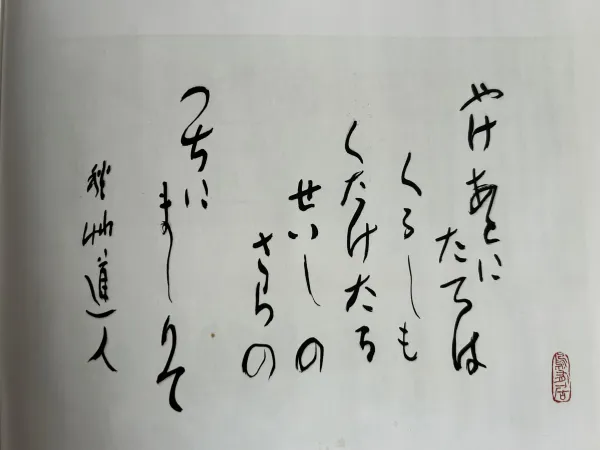 やけあとに
たては
くるしも
くたけたる
せいしの
さらの
つちに
ましりて
秋艸道人